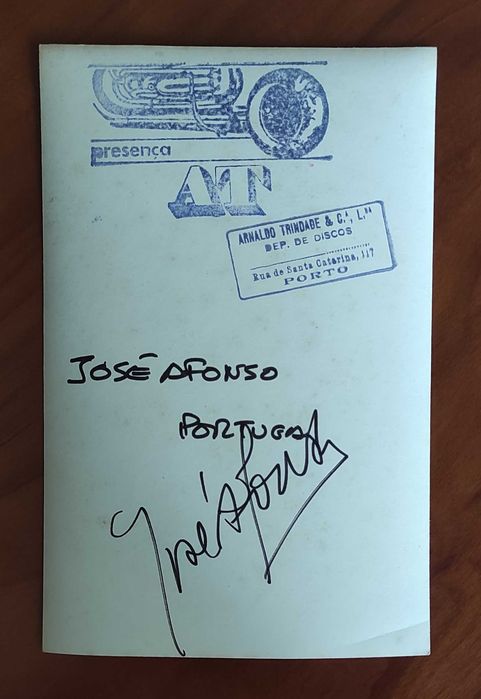 presença
AT
ARNALDO TRINDADE & C.ª, L.ᵈᵃ
DEP. DE DISCOS
Rua de Santa Catarina, 117
PORTO
JOSÉ AFONSO
PORTUGAL
José Afonso